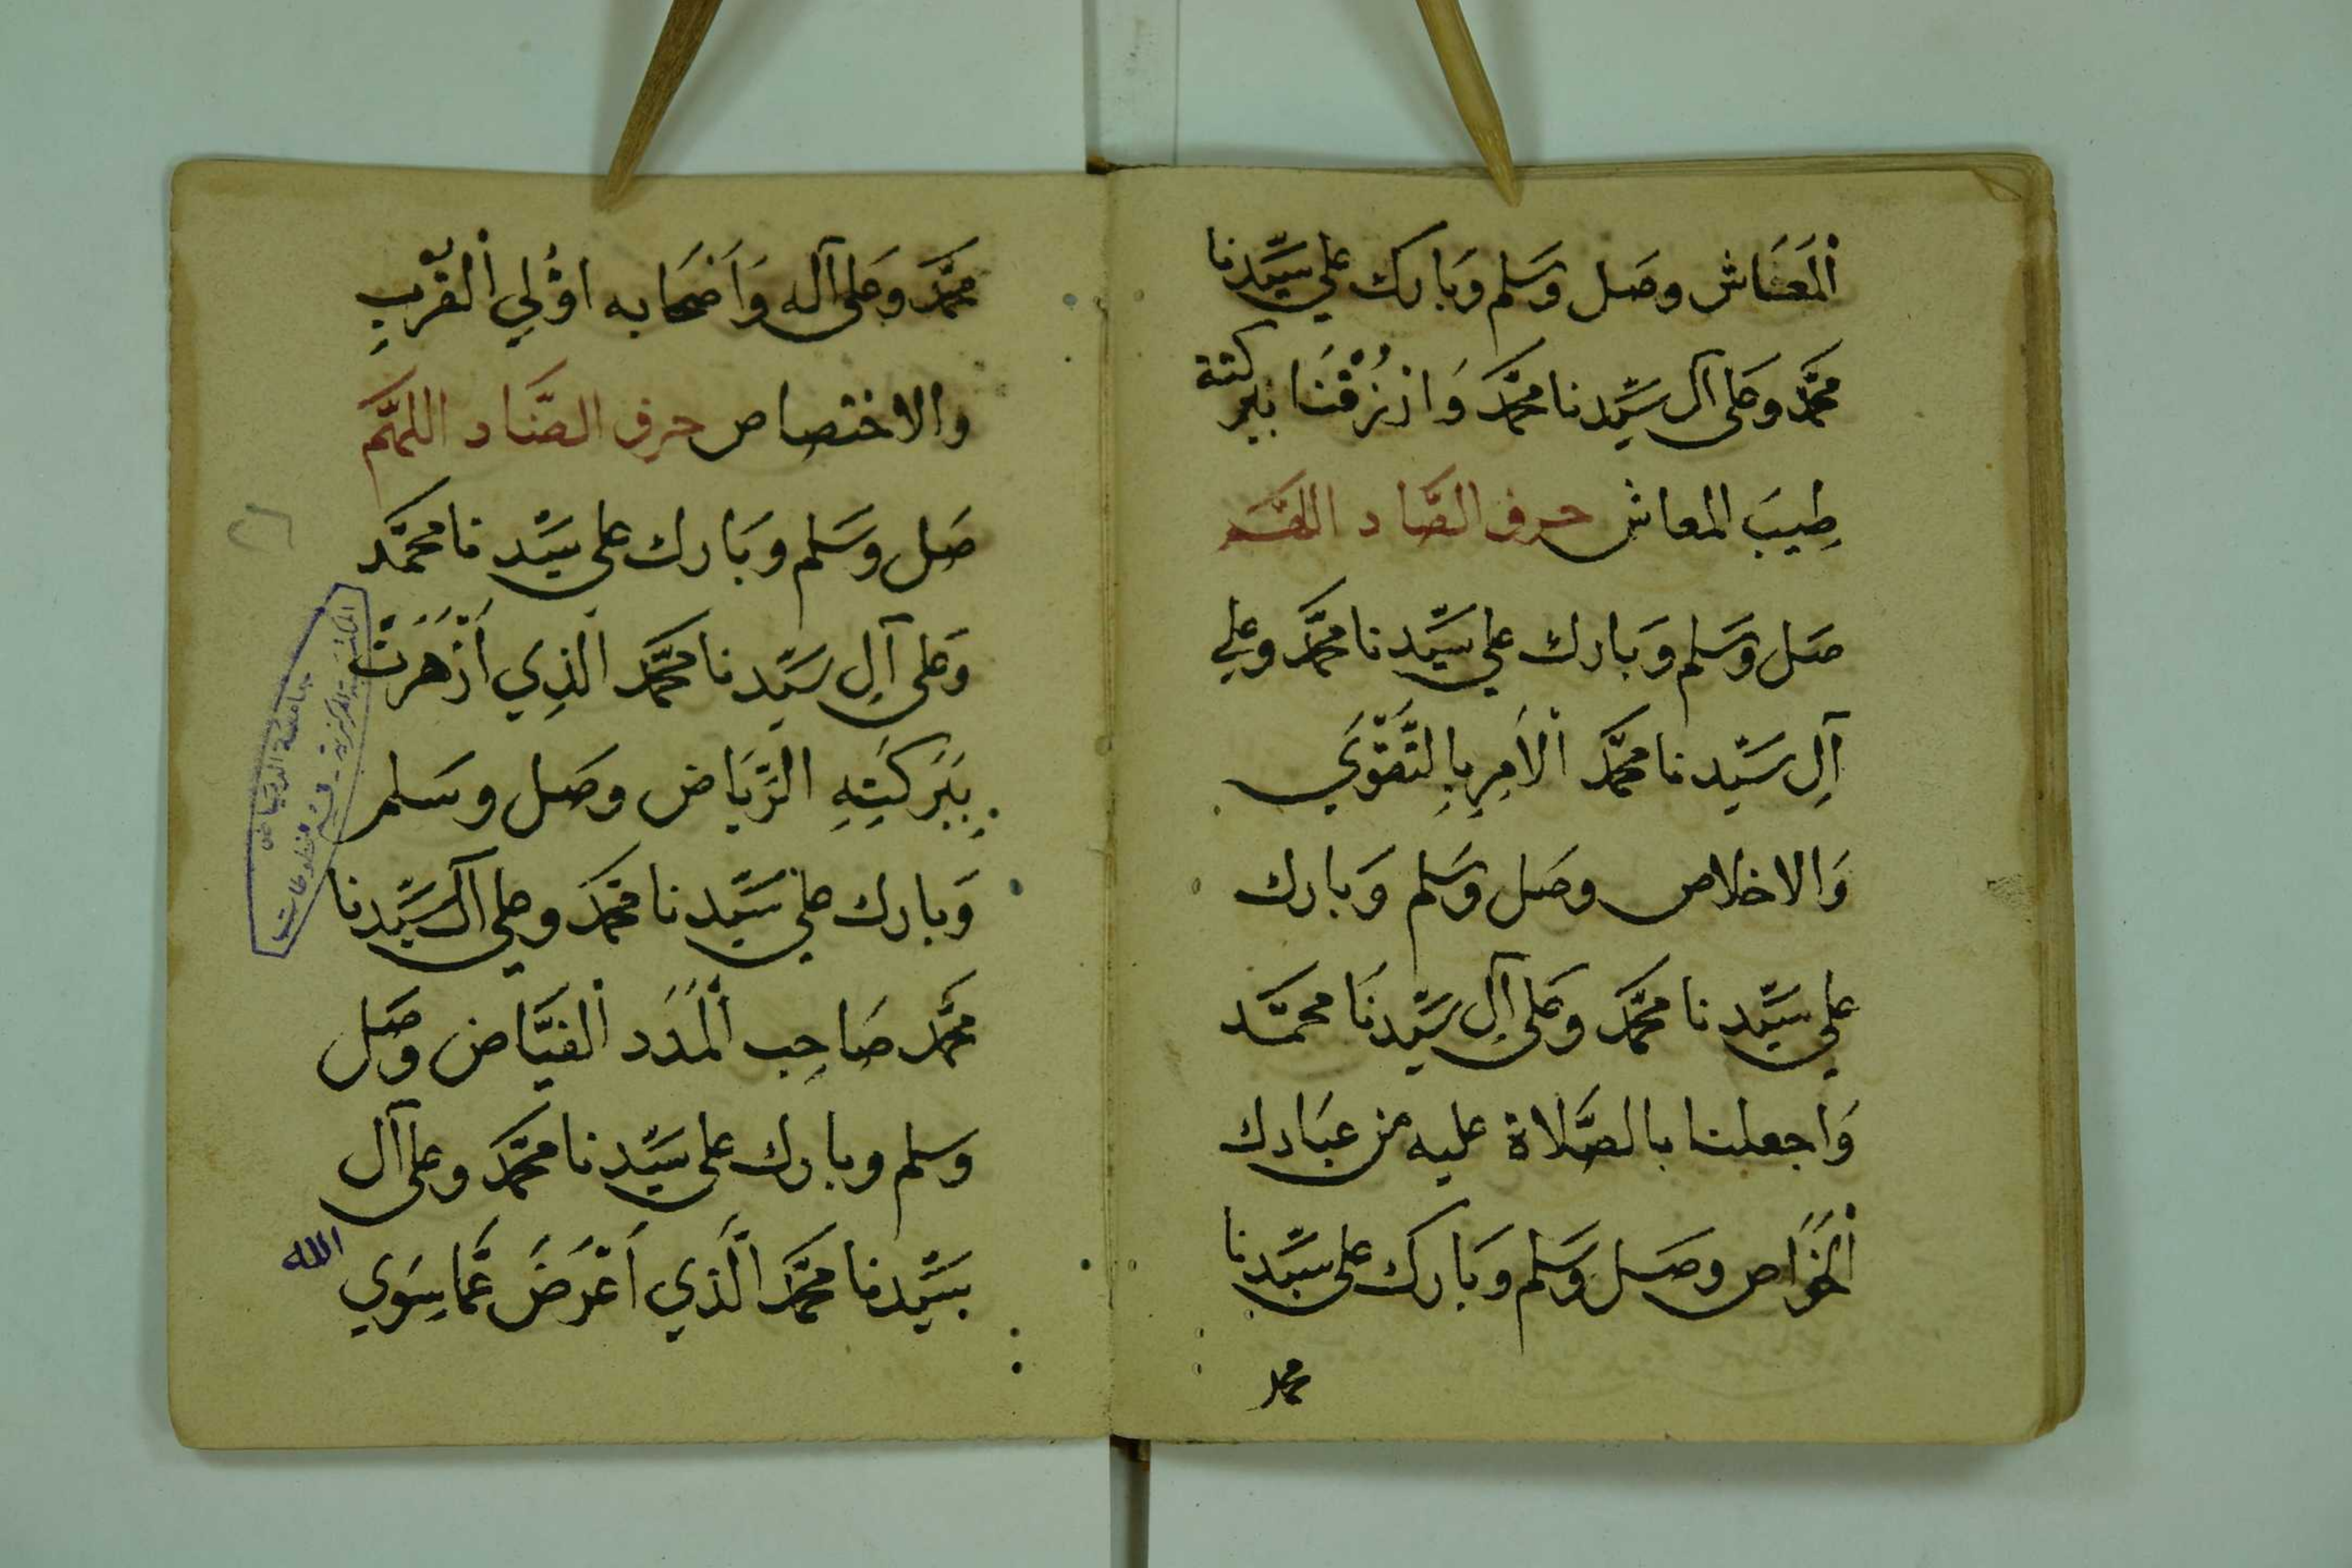 اْلمَعَاش وصَل وسَلم وَبَارك علي سيِّدنا
محمَّد وعَلى آل سيِّدنا محمَّد وَارْزُقْنَا ببركته
طِيبَ المعاش حرف الصَّاد اللهُم
صَل وسَلم وَبَارك علي سيِّدنا محمَّد وعلي
آلِ سَيّدنا محمَّد اْلآمِرِ بِالتَّقْوَي
وَالاخلاص وصَل وسَلم وَبارك
علي سيِّدنا محمَّد وعَلى آلِ سَيِّدنَا محمَّد
وَاجعلنا بالصَّلاة عليه من عبَادك
اْلخَوَاص وصَل وسَلم وَبَارك على سيِّدنا
محمد
محمَّد وعَلى آله وَاَصْحَابه اوُلي اْلقُرْبِ
والاختصاص حرف الضَّاد اللهُم
صَل وسَلم وبَارك على سيِّدنا محمَّد
وَعلى آلِ سَيِّدنا محمَّد الذِي اَزْهَرَتْ
بِبَرَكَتِهِ الرِّيَاض وصَل وسَلم
وَبارك علي سَيِّدنا محمَّد وعلي آل سَيِّدنا
محمَّد صَاحِب اْلمَدَد اْلفيَّاض وصَل
وَسلم وبارك على سَيِّدنا محمَّد وعلى آل
سَيِّدنا محمَّد الَّذي اَعْرَضَ عَمَّا سِوَي
الله
٢٦
جامعة الرياض
المكتبة المركزية - قسم المخطوطات